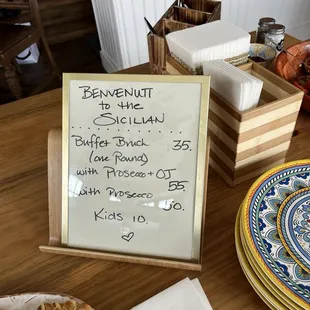 BENVENUTI
to the
SICILIAN
Buffet Brunch 35.
(one Round)
with Prosecco + OJ
55.
with Prosecco
50.
Kids 10.